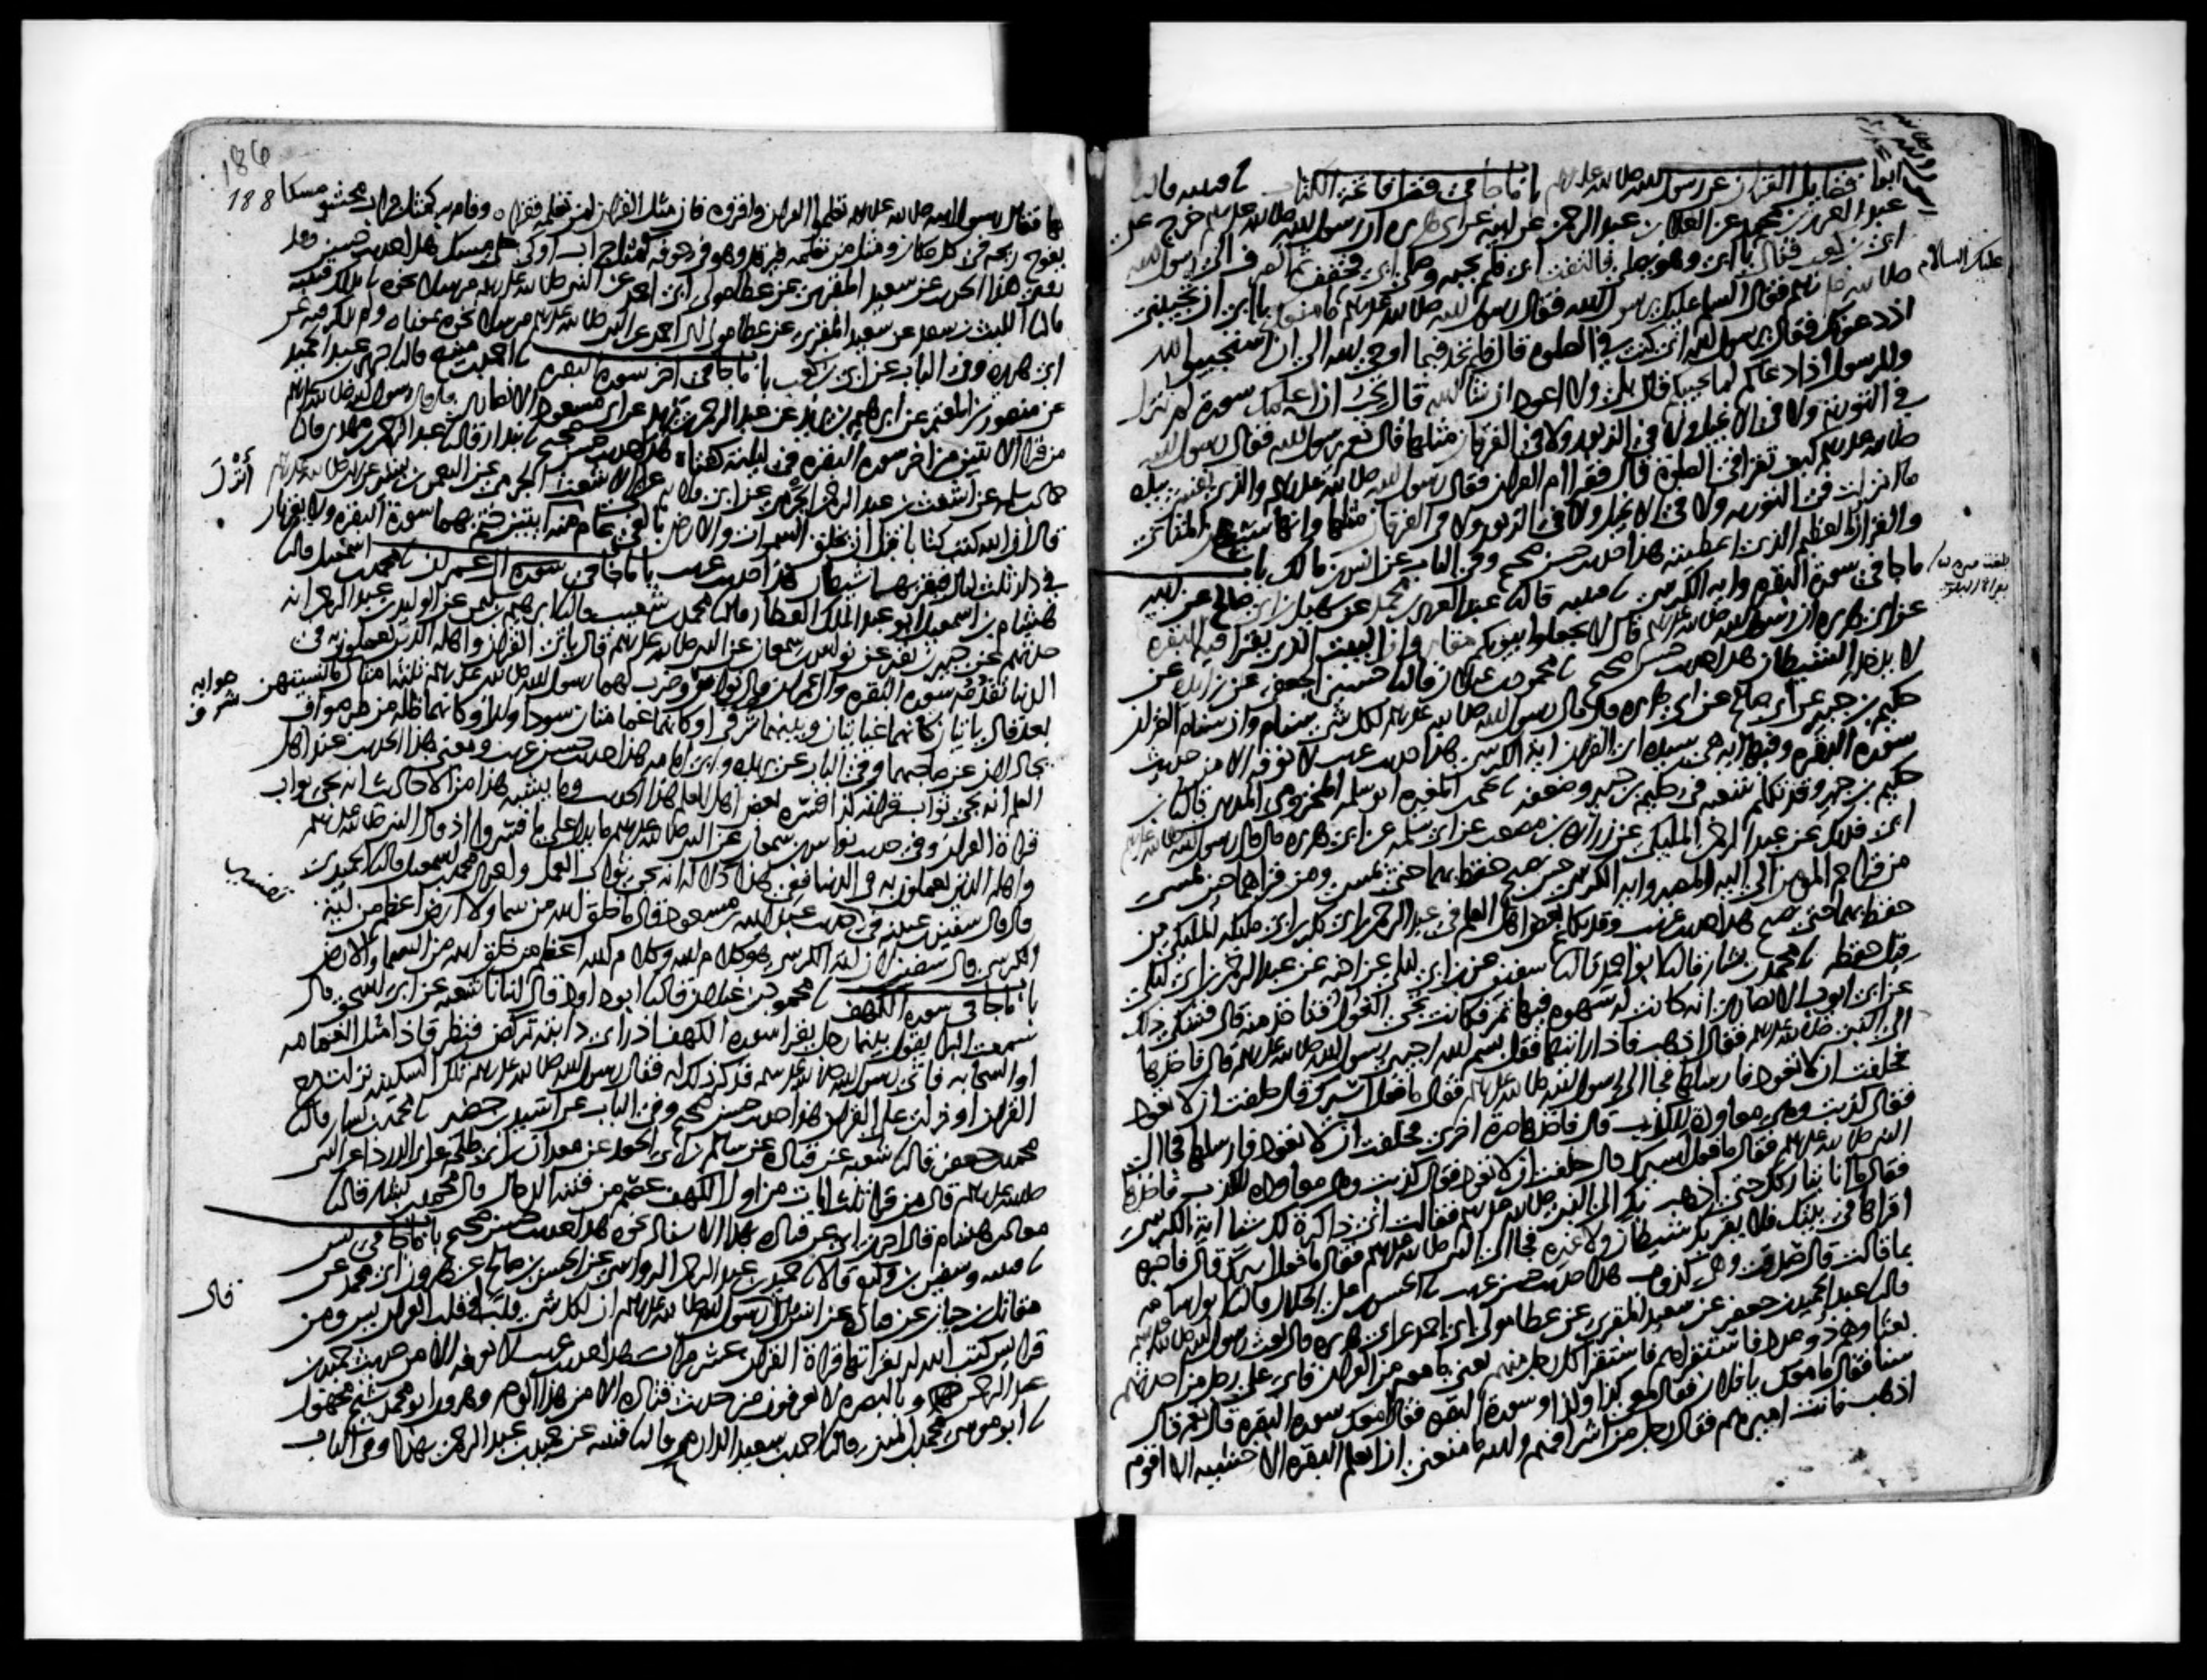 ابواب فضايل القران عن رسول الله صلى الله عليه وسلم باب ما جا في فضل فاتحة الكتاب
عبد العزيز بن محمد عن العلا بن عبد الرحمن عن ابيه عن ابي هريره ان رسول الله صلى الله عليه وسلم خرج على
ابي بن كعب فقال يا ابي وهو يصلي فالتفت ابي فلم يجبه وصلى ابي فخفف ثم انصرف الى رسول الله
فقال السلم عليك يرسول الله فقال رسول الله صلى الله عليه وسلم ما منعك يا ابي ان تجيبني
عليك السلام
اذ دعوتك فقال يرسول الله اني كنت في الصلوة قال فلم تجد فيما اوحى الله الي ان استجيبوا لله
وللرسول اذا دعاكم لما يحييكم قال بلى ولا اعود ان شا الله قال تحب ان اعلمك سورة لم ينزل
في التورية ولا في الانجيل ولا في الزبور ولا في الفرقان مثلها قال نعم يرسول الله فقال رسول الله
صلى الله عليه وسلم كيف تقرا في الصلوة قال فقرا ام القران فقال رسول الله صلى الله عليه وسلم والذي نفسي بيده
ما انزلت في التورية ولا في الانجيل ولا في الزبور ولا في الفرقان مثلها وانها سبع من المثاني
والقران العظيم الذي اعطيته هذا حديث حسن صحيح وفي الباب عن انس بن مالك باب
ما جا في سورة البقره واية الكرسي قتيبه قال عبد العزيز بن محمد عن سهيل بن ابي صالح عن ابيه
عن ابي هريره ان رسول الله صلى الله عليه وسلم قال لا تجعلوا بيوتكم مقابر وان البيت الذي يقرا فيه البقره
لا يدخله الشيطان هذا حديث حسن صحيح محمود بن غيلان قال حسين الجعفي عن زايده عن
حكيم بن جبير عن ابي صالح عن ابي هريره قال قال رسول الله صلى الله عليه وسلم لكل شي سنام وان سنام القران
سورة البقره وفيها ايه هي سيدة اي القران اية الكرسي هذا حديث غريب لا نعرفه الا من حديث
حكيم بن جبير وقد تكلم شعبه في حكيم بن جبير وضعفه يحيى بن المغيره ابو سلمه المخزومي المديني قال
ابن ابي فديك عن عبد الرحمن المليكي عن زراره بن مصعب عن ابي سلمه عن ابي هريره قال قال رسول الله صلى الله عليه وسلم
من قرا حم المومن الى اليه المصير واية الكرسي حين يصبح حفظ بهما حتى يمسي ومن قراهما حين يمسي
حفظ بهما حتى يصبح هذا حديث غريب وقد تكلم بعض اهل العلم في عبد الرحمن بن ابي بكر بن ابي مليكه المليكي من
قبل حفظه محمد بن بشار قال ابو احمد قال سفين عن ابن ابي ليلى عن اخيه عن عبد الرحمن بن ابي ليلى
عن ابي ايوب الانصاري انه كانت له سهوة فيها تمر فكانت تجي الغول فتاخذ منه قال فشكى ذلك
الى النبي صلى الله عليه وسلم فقال اذهب فاذا رايتها فقل بسم الله اجيبي رسول الله صلى الله عليه وسلم قال فاخذها
فحلفت ان لا تعود فارسلها فجا الى رسول الله صلى الله عليه وسلم فقال ما فعل اسيرك قال حلفت ان لا تعود
فقال كذبت وهي معاودة للكذب قال فاخذها مرة اخرى فحلفت ان لا تعود فارسلها فجا الى
النبي صلى الله عليه وسلم فقال ما فعل اسيرك قال حلفت ان لا تعود فقال كذبت وهي معاودة للكذب فاخذها
فقال ما انا بتاركك حتى اذهب بك الى النبي صلى الله عليه وسلم فقالت اني ذاكرة لك شيا اية الكرسي
اقراها في بيتك فلا يقربك شيطان ولا غيره فجا الى النبي صلى الله عليه وسلم فقال ما فعل اسيرك قال فاخبره
بما قالت قال صدقت وهي كذوب هذا حديث حسن غريب الحسن بن علي الحلال قال ابو اسامه
قال عبد الحميد بن جعفر عن سعيد المقبري عن عطا مولى ابي احمد عن ابي هريره قال بعث رسول الله صلى الله عليه وسلم
بعثا وهم ذو عدد فاستقراهم فاستقرا كل رجل منهم يعني ما معه من القران فاتى على رجل من احدثهم
سنا فقال ما معك يا فلان فقال معي كذا وكذا وسورة البقره فقال امعك سورة البقرة قال نعم قال
اذهب فانت اميرهم فقال رجل من اشرافهم والله ما منعني ان اتعلم البقره الا خشية الا اقوم
186
188
بها فقال رسول الله صلى الله عليه وسلم تعلموا القران واقروه فان مثل القران لمن تعلمه فقراه وقام به كمثل جراب محشو مسكا
يفوح ريحه في كل مكان ومثل من تعلمه فيرقد وهو في جوفه كمثل جراب اوكي على مسك هذا حديث حسن وقد
قال الليث بن سعد عن سعيد المقبري عن عطا مولى ابي احمد عن النبي صلى الله عليه وسلم مرسلا نحوه بمعناه ولم يذكر فيه عن
ابي هريره وفي الباب عن ابي بن كعب باب ما جا في اخر سورة البقره احمد بن منيع قال جرير بن عبد الحميد
عن منصور بن المعتمر عن ابرهيم بن يزيد عن عبد الرحمن بن يزيد عن ابي مسعود الانصاري قال قال رسول الله صلى الله عليه وسلم
من قرا الايتين من اخر سورة البقره في ليلة كفتاه هذا حديث حسن صحيح بندار قال عبد الرحمن بن مهدي قال
حماد بن سلمه عن اشعث بن عبد الرحمن الجرمي عن ابي قلابه عن ابي الاشعث الجرمي عن النعمن بن بشير عن النبي صلى الله عليه وسلم
أنزل
قال ان الله كتب كتابا قبل ان يخلق السموات والارض بالفي عام منه ايتين ختم بهما سورة البقره ولا يقران
في دار ثلث ليال فيقربها شيطان هذا حديث غريب باب ما جا في سورة ال عمران محمد بن اسمعيل قال
هشام بن اسمعيل ابو عبد الملك العطار قال محمد بن شعيب قال ابرهيم بن سليمن عن الوليد بن عبد الرحمن انه
حدثهم عن جبير بن نفير عن نواس بن سمعان عن النبي صلى الله عليه وسلم قال ياتي القران واهله الذين يعملون به في
الدنيا تقدمه سورة البقره وال عمران قال نواس وضرب لهما رسول الله صلى الله عليه وسلم ثلثة امثال ما نسيتهن
صوابه شرف
بعد قال ياتيان كانهما غيايتان وبينهما شرق او كانهما غمامتان سوداوان او كانهما ظلة من طير صواف
تجادلان عن صاحبهما وفي الباب عن بريده وابي امامه هذا حديث حسن غريب ومعنى هذا الحديث عند اهل
العلم انه يجي ثواب قراته كذا فسره بعض اهل العلم هذا الحديث وما يشبه هذا من الاحاديث انه يجي ثواب
قراة القران وفي حديث نواس بن سمعان عن النبي صلى الله عليه وسلم ما يدل على ما فسروا اذ قال النبي صلى الله عليه وسلم
واهله الذين يعملون به في الدنيا ففي هذا دلالة انه يجي ثواب العمل واخبرني محمد بن اسمعيل قال الحميدي
قال قال سفين بن عيينه في حديث عبد الله بن مسعود قال ما خلق الله من سما ولا ارض اعظم من اية
الكرسي قال سفين لان اية الكرسي هو كلام الله وكلام الله اعظم من خلق الله من السما والارض
باب ما جا في سورة الكهف محمود بن غيلان قال ابو داود قال انبانا شعبه عن ابي اسحق قال
سمعت البرا يقول بينما رجل يقرا سورة الكهف اذ راى دابته تركض فنظر فاذا مثل الغمامه
او السحابه فاتى رسول الله صلى الله عليه وسلم فذكر ذلك له فقال رسول الله صلى الله عليه وسلم تلك السكينه نزلت مع
القران او نزلت على القران هذا حديث حسن صحيح وفي الباب عن اسيد بن حضير محمد بن بشار قال
محمد بن جعفر قال شعبه عن قتاده عن سالم بن ابي الجعد عن معدان بن ابي طلحه عن ابي الدرداء عن النبي
صلى الله عليه وسلم قال من قرا ثلث ايات من اول الكهف عصم من فتنة الدجال قال محمد بن بشار قال
معاذ بن هشام قال اخبرني ابي عن قتاده بهذا الاسناد نحوه هذا حديث حسن صحيح باب ما جا في يس
قتيبه وسفين بن وكيع قالا حميد بن عبد الرحمن الرواسي عن الحسن بن صالح عن هرون ابي محمد عن
مقاتل بن حيان عن قتاده عن انس قال قال رسول الله صلى الله عليه وسلم ان لكل شي قلبا وقلب القران يس ومن
قال
قرا يس كتب الله له بقراتها قراة القران عشر مرات هذا حديث غريب لا نعرفه الا من حديث حميد بن
عبد الرحمن وبالبصره لا يعرفون من حديث قتاده الا من هذا الوجه وهرون ابو محمد شيخ مجهول
ابو موسى محمد بن المثنى قال احمد بن سعيد الدارمي قال قتيبه عن حميد بن عبد الرحمن بهذا وفي الباب